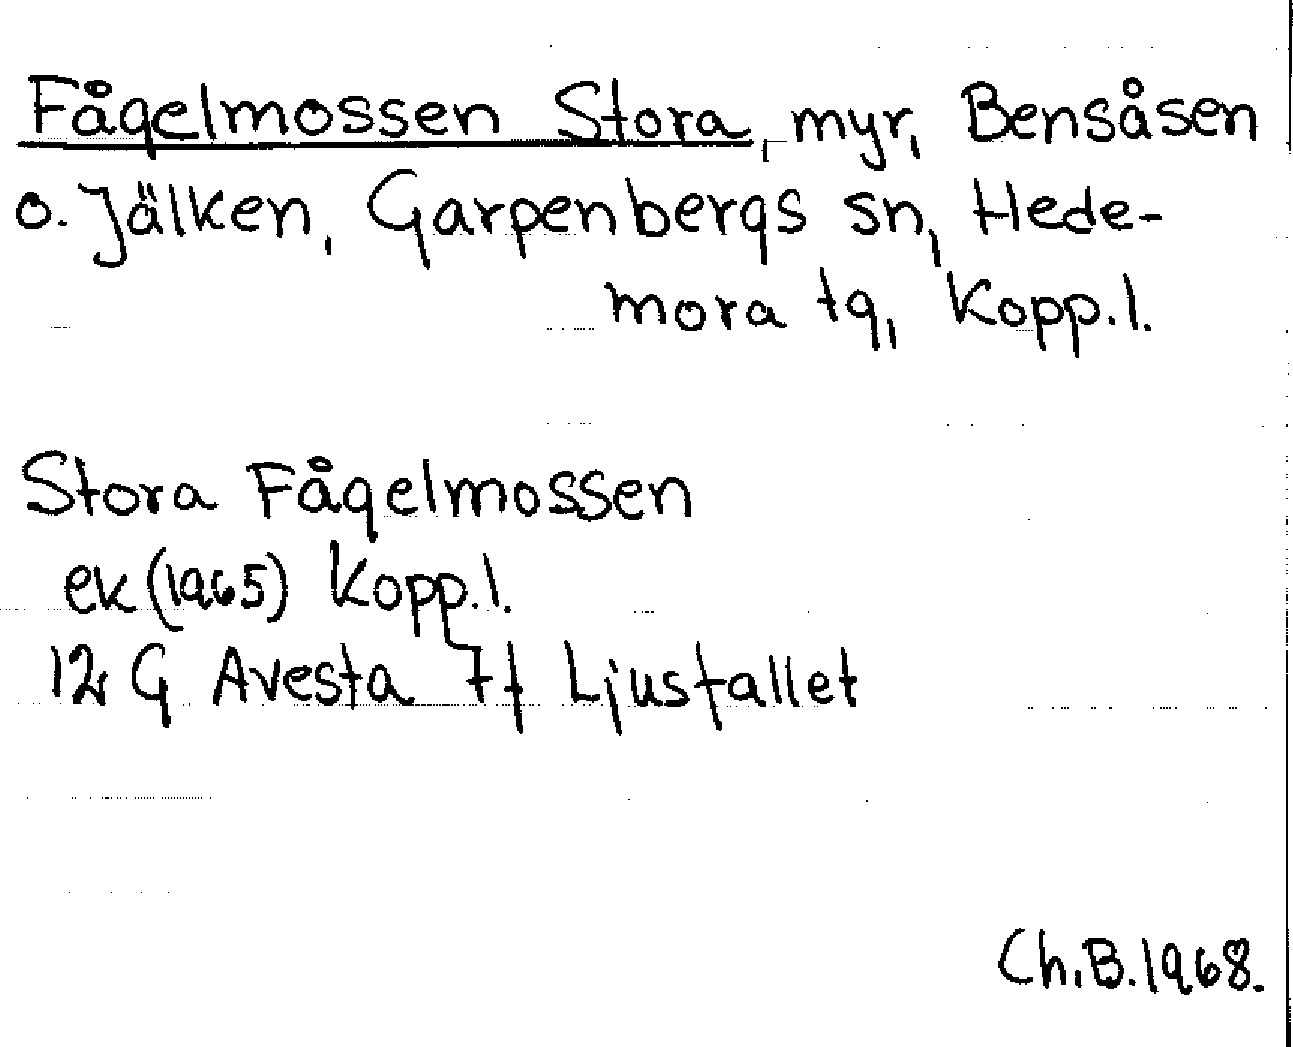 Fågelmossen Stora, myr, Bensåsen
o. Jälken, Garpenbergs sn, Hede-
mora tg, Kopp.l.
Stora Fågelmossen
ek (1965) Kopp.l.
12 G Avesta 7f Ljusfallet
Ch.B.1968.